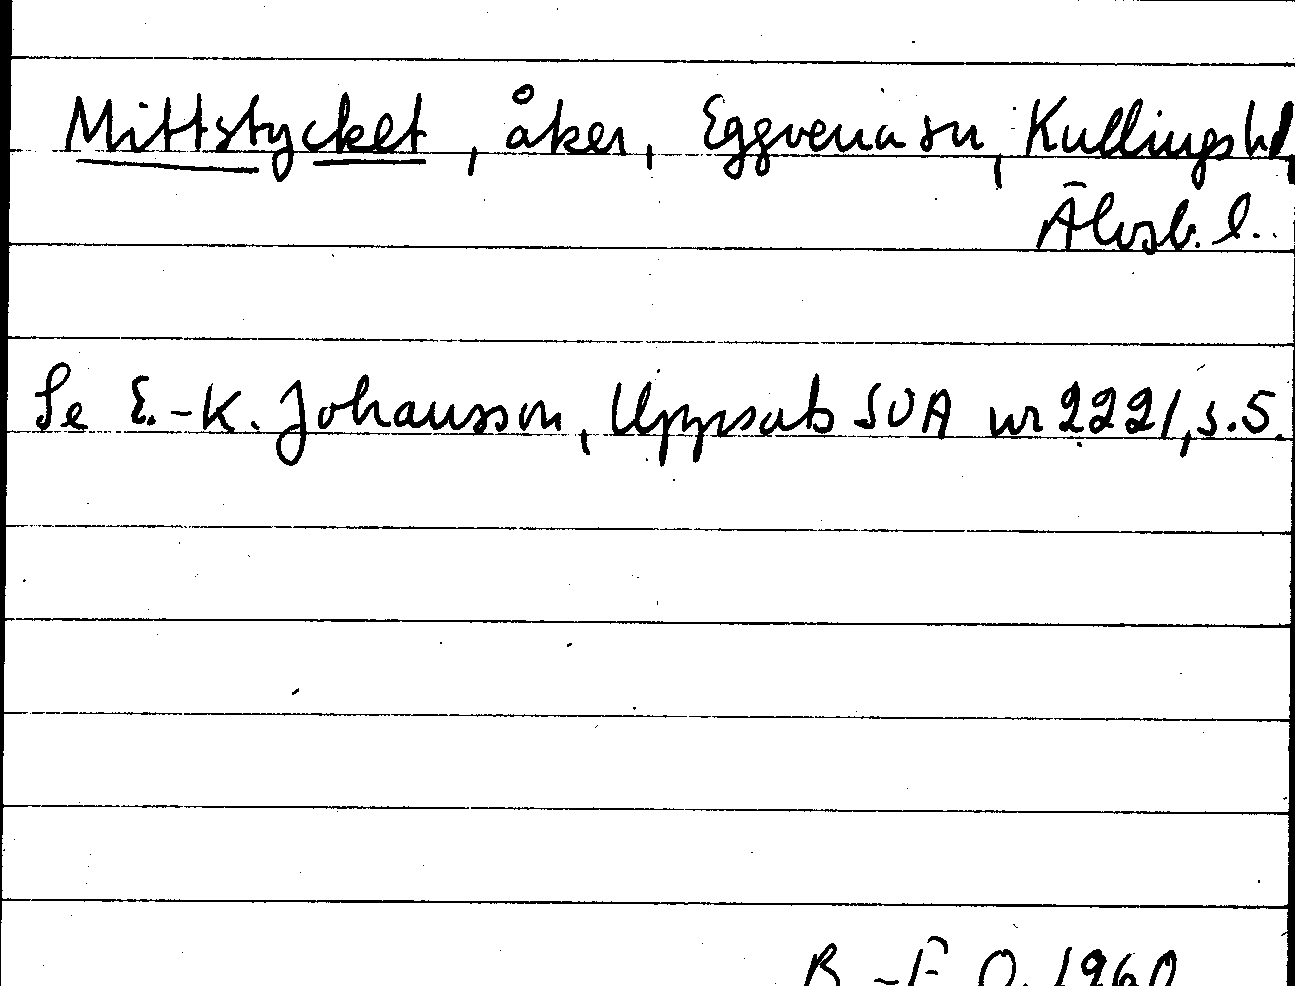 Mittstycket, åker, Eggvena sn, Kullings hd,
Älvsb. l.
Se E.-K. Johansson, Uppsats SOA nr 2221, s. 5.
B.-E. O. 1960